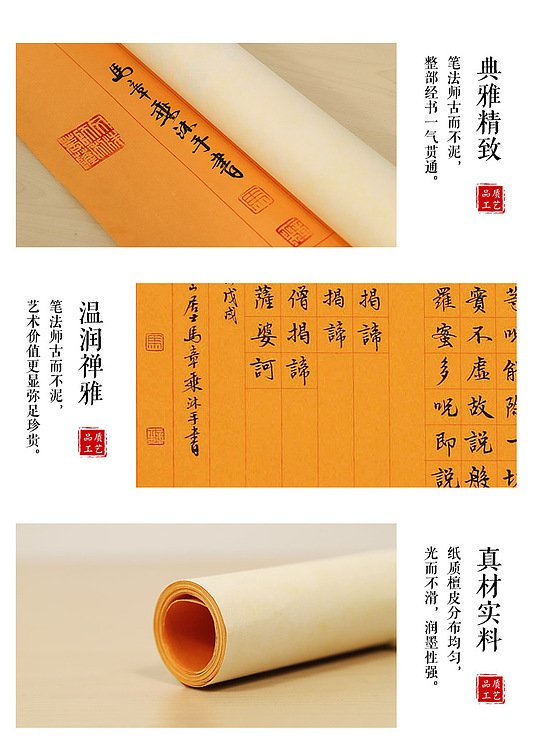 典雅精致
笔法师古而不泥，
整部经书一气贯通。
品质
工艺
馬章乘沐手書
能除一切
實不虛故說般
羅蜜多呪即說
揭諦
揭諦
僧揭諦
薩婆訶
戊戌
居士馬章乘沐手書
温润禅雅
笔法师古而不泥，
艺术价值更显弥足珍贵。
品质
工艺
真材实料
纸质檀皮分布均匀，
光而不滑，润墨性强。
品质
工艺